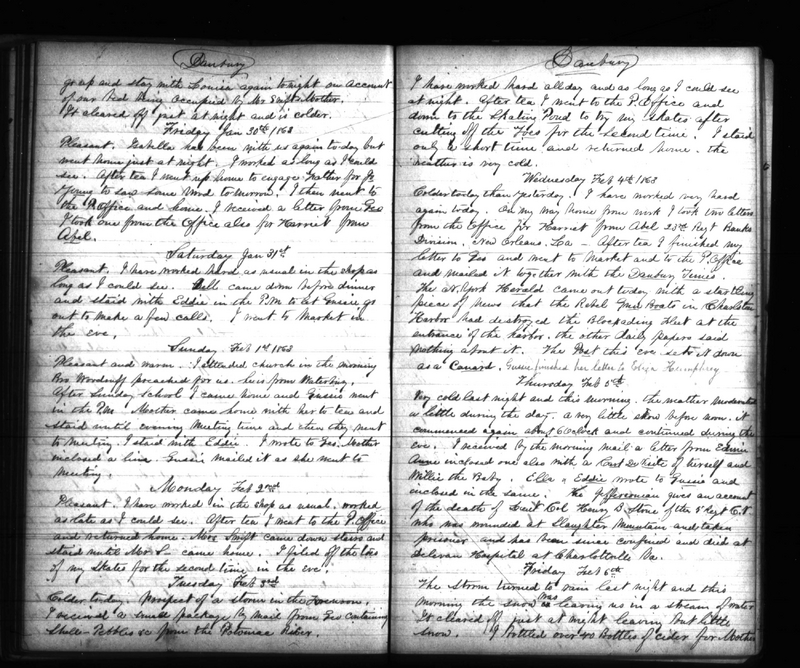 Danbury
go up and stay with Louisa again tonight on account
of our Bed being occupied by Mr Swifts Mother.
It cleared off just at night and is colder.
Friday Jan 30th 1863
Pleasant. Isabella has been with us again to day but
went home just at night. I worked as long as I could
see. After tea I went up home to engage Father for
to saw some Wood to morrow. I then went to
the P. Office and home. I received a letter from Geo
I took one from the Office also for Harriet from
Abel.
Saturday Jan 31st
Pleasant. I have worked hard as usual in the shop as
long as I could see. came down before dinner
and staid with Eddie in the P.M to let Gussie go
out to make a few calls. I went to Market in
the eve.
Sunday Feb 1st 1863
Pleasant and warm. I attended church in the morning
Bro Woodruff preached for us. he is from Waterbury.
After Sunday school I came home and Gussie went
in the P.M. Mother came home with her to tea and
staid until evening Meeting time and then they went
to Meeting. I staid with Eddie. I wrote to Geo. Mother
enclosed a line. Gussie mailed it as she went to
Meeting.
Monday Feb 2nd
Pleasant. I have worked in the shop as usual. worked
as late as I could see. After tea I went to the P. Office
and returned home. Mrs Swift came down stairs and
staid until Mr S. came home. I filed off the toes
of my Skates for the second time in the eve.
Tuesday Feb 3rd
Colder to day. Prospect of a storm in the forenoon.
I received a small package by Mail from Geo containing
Shells Pebbles &c from the Potomac River.
Danbury
I have worked hard all day and as long as I could see
at night. After tea I went to the P. Office and
down to the Skating Pond to try my skates after
cutting off the Toes for the second time. I staid
only a short time and returned home. the
weather is very cold.
Wednesday Feb 4th 1863
Colder to day than yesterday. I have worked very hard
again to day. On my way home from work I took two letters
from the Office for Harriet from Abel 23rd Regt Banks
Division, New Orleans, Loa — After tea I finished my
letter to Geo and went to Market and to the P. Office
and mailed it together with the Danbury Times.
The N. York Herald came out to day with a startling
piece of News that the Rebel Gun Boats in Charleston
Harbor had destroyed the Blockading fleet at the
entrance of the harbor. the other Daily papers said
nothing about it. The Post this eve sets it down
as a Canard. Gussie finished her letter to Humphrey
Thursday Feb 5th
Very cold last night and this morning. the weather moderated
a little during the day. a very little snow before noon. it
commenced again about 6 O'clock and continued during the
eve. I received by the morning mail a letter from
Anne inclosed one also with a Cart De Visite of herself and
Willie the Baby. Ella & Eddie wrote to Gussie and
enclosed in the same. The Jeffersonian gives an account
of the death of Lieut Col Henry B. Stone of the 5 Regt C.V.
who was wounded at Slaughter Mountain and taken
prisoner and has been since confined and died at
Delevan Hospital at Charlottsville Va.
Friday Feb 6th
The Storm turned to rain last night and this
morning the snow was leaving us in a stream of water
It cleared off just at night leaving but little
snow. I bottled over 40 Bottles of cider for Mother